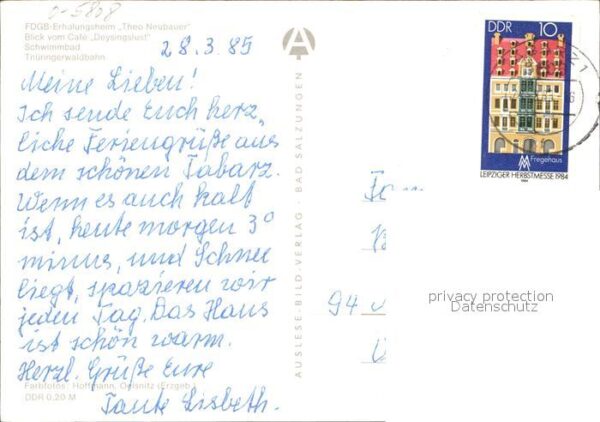 0-5808
FDGB-Erholungsheim „Theo Neubauer"
Blick vom Café „Deysingslust"
Schwimmbad
Thüringerwaldbahn
28.3.85
Meine Lieben!
Ich sende Euch herz„
liche Feriengrüße aus
dem schönen Tabarz.
Wenn es auch kalt
ist, heute morgen 3°
minus, und Schnee
liegt, spazieren wir
jeden Tag. Das Haus
ist schön warm.
Herzl. Grüße Eure
Tante Lisbeth.
Farbfotos: Hoffmann, Oelsnitz (Erzgeb.)
DDR 0,20 M
AUSLESE-BILD-VERLAG · BAD SALZUNGEN
A
DDR 10
Fregehaus
LEIPZIGER HERBSTMESSE 1984
94
privacy protection
Datenschutz